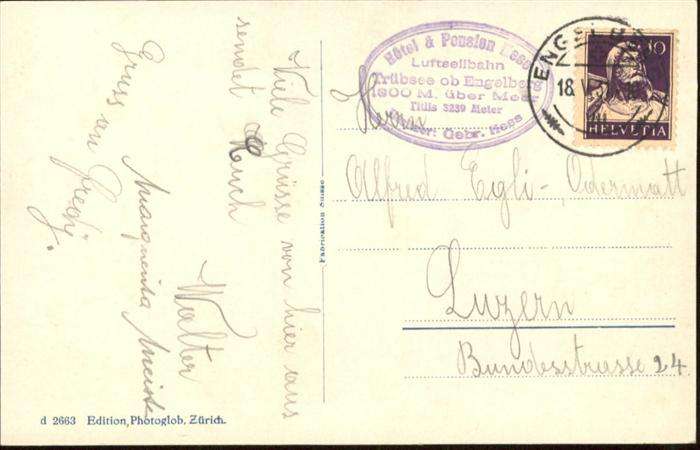 Viele Grüsse von hier aus
sendet Euch
Walter
Gruss an Fredy.
Margueritha
Hôtel & Pension Hess
Luftseilbahn
Trübsee ob Engelberg
1800 M. über Meer
Titlis 3239 Meter
Besitzer: Gebr. Hess
ENGELBERG
18. V.
10
HELVETIA
Herrn
Alfred Egli-Odermatt
Luzern
Bundesstrasse 24.
Fabrication Suisse
d 2663 Edition, Photoglob, Zürich.